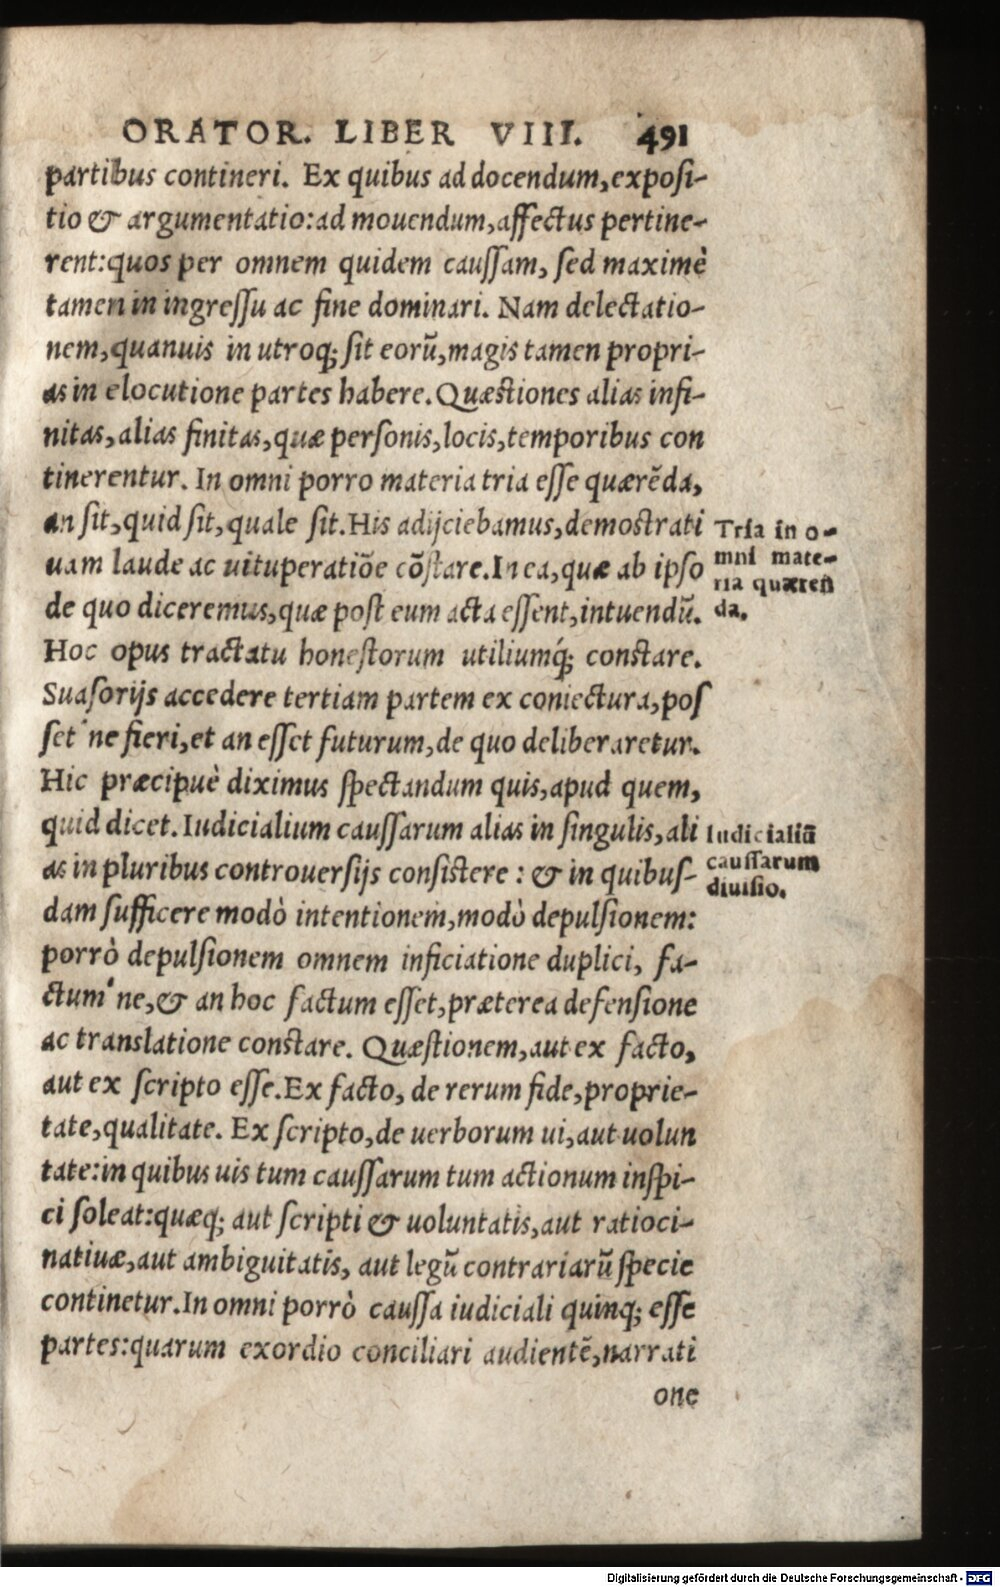 ORATOR. LIBER VIII. 491
partibus contineri. Ex quibus ad docendum, exposi-
tio & argumentatio: ad mouendum, affectus pertine-
rent: quos per omnem quidem caussam, sed maximè
tamen in ingressu ac fine dominari. Nam delectatio-
nem, quanuis in utroq; sit eorũ, magis tamen propri-
as in elocutione partes habere. Quæstiones alias infi-
nitas, alias finitas, quæ personis, locis, temporibus con
tinerentur. In omni porro materia tria esse quærẽda,
an sit, quid sit, quale sit. His adijciebamus, demostrati
uam laude ac uituperatiõe cõstare. In ea, quæ ab ipso
de quo diceremus, quæ post eum acta essent, intuendũ.
Hoc opus tractatu honestorum utiliumq́; constare.
Suasorijs accedere tertiam partem ex coniectura, pos
set'ne fieri, et an esset futurum, de quo deliberaretur.
Hic præcipuè diximus spectandum quis, apud quem,
quid dicet. Iudicialium caussarum alias in singulis, ali
as in pluribus controuersijs consistere: & in quibus-
dam sufficere modò intentionem, modò depulsionem:
porrò depulsionem omnem inficiatione duplici, fa-
ctum'ne, & an hoc factum esset, præterea defensione
ac translatione constare. Quæstionem, aut ex facto,
aut ex scripto esse. Ex facto, de rerum fide, proprie-
tate, qualitate. Ex scripto, de uerborum ui, aut uolun
tate: in quibus uis tum caussarum tum actionum inspi-
ci soleat: quæq; aut scripti & uoluntatis, aut ratioci-
natiuæ, aut ambiguitatis, aut legũ contrariarũ specie
continetur. In omni porrò caussa iudiciali quinq; esse
partes: quarum exordio conciliari audientẽ, narrati
one
Tria in o-
mni mate-
ria quæren
da.
Iudicialiũ
caussarum
diuisio.
Digitalisierung gefördert durch die Deutsche Forschungsgemeinschaft - DFG